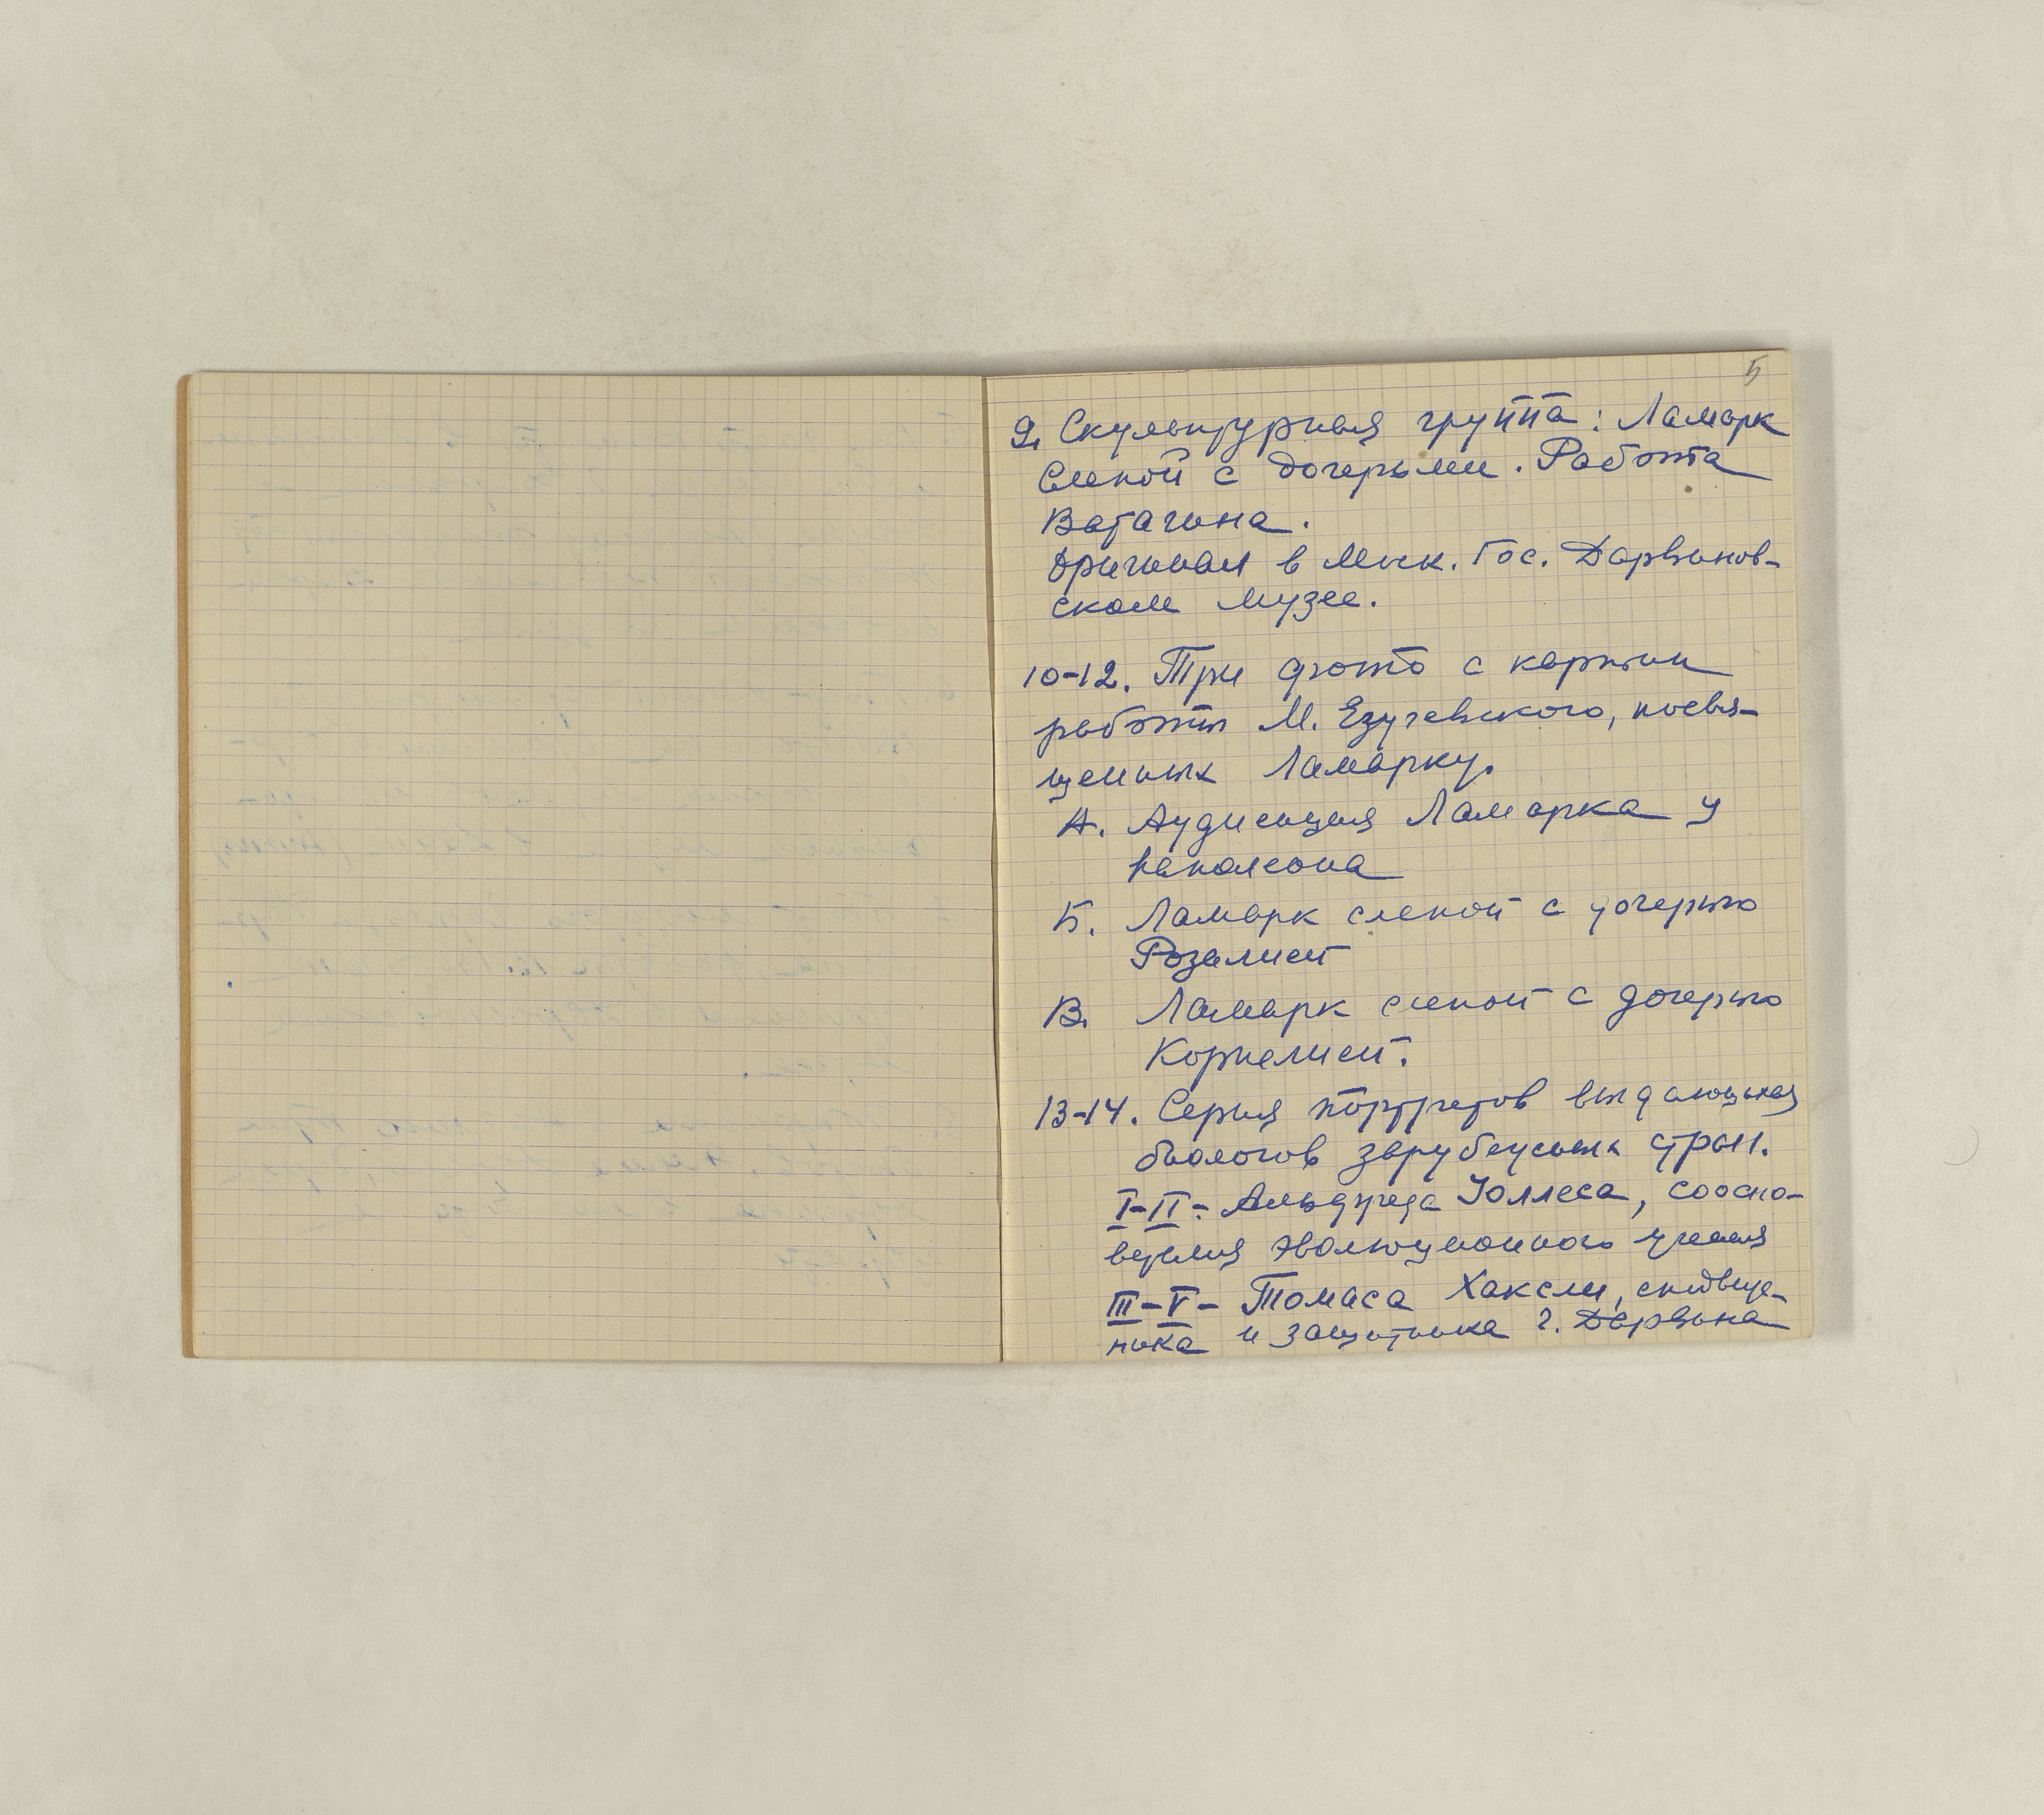 5
9. Скульптурная группа: Ламарк
слепой с дочерьми. Работа
Ватагина.
Оригинал в Моск. Гос. Дарвинов-
ском Музее.
10-12. Три фото с картин
работы М. Езучевского, посвя-
щенных Ламарку.
А. Аудиенция Ламарка у
Наполеона
Б. Ламарк слепой с дочерью
Розалией
В. Ламарк слепой с дочерью
Корнелией.
13-14. Серия портретов выдающихся
биологов зарубежных стран.
I-II- Альфреда Уоллеса, соосно-
вателя эволюционного учения
III-V- Томаса Хаксли, сподвиж-
ника и защитника Ч. Дарвина